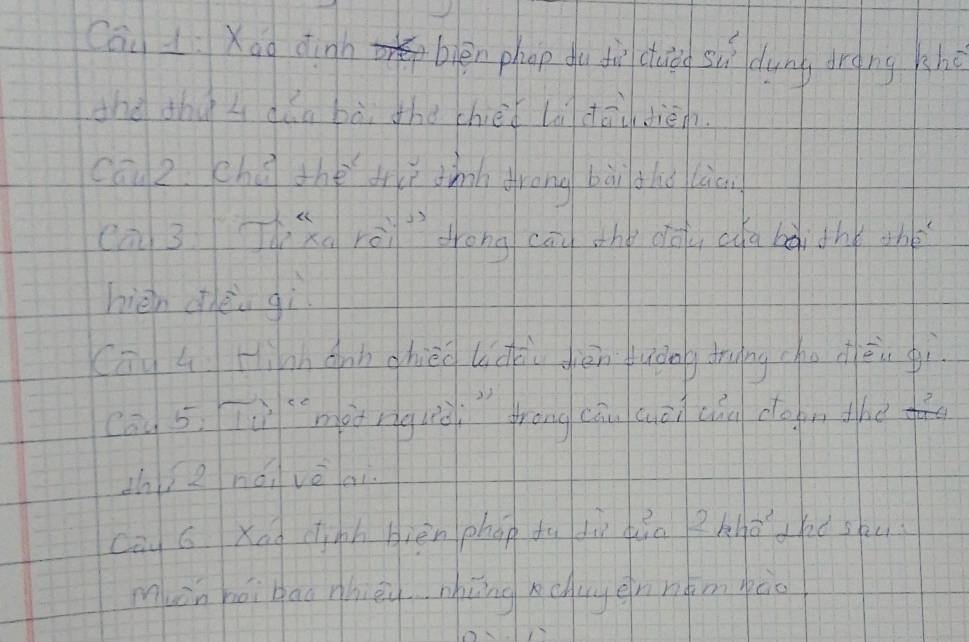 Câu 1: Xác định biện pháp tu từ được sử dụng trong khổ
thơ thứ 4 của bài thơ chiếc lá đầu tiên.
Câu 2. Chủ thể trữ tình trong bài thơ là ai
Câu 3. Từ "xa rồi" trong câu thơ đầu của bài thơ thể
hiện điều gì.
Câu 4. Hình ảnh chiếc lá đầu tiên tượng trưng cho điều gì.
Câu 5. Từ "một người" trong câu cuối của đoạn thơ
thứ 2 nói về ai.
Câu 6 Xác định biện pháp tu từ của 2 khổ thơ sau:
Muốn nói bao nhiêu... những chuyện năm nào